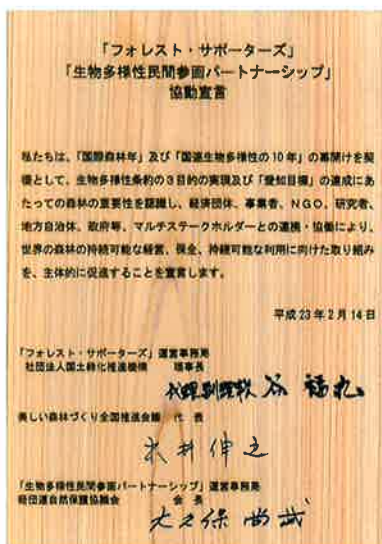 「フォレスト・サポーターズ」
「生物多様性民間参画パートナーシップ」
協動宣言
私たちは、「国際森林年」及び「国連生物多様性の10年」の幕開けを契
機として、生物多様性条約の3目的の実現及び「愛知目標」の達成にあ
たっての森林の重要性を認識し、経済団体、事業者、NGO、研究者、
地方自治体、政府等、マルチステークホルダーとの連携・協働により、
世界の森林の持続可能な経営、保全、持続可能な利用に向けた取り組み
を、主体的に促進することを宣言します。
平成23年2月14日
「フォレスト・サポーターズ」運営事務局
社団法人国土緑化推進機構 理事長
代理 副理事長 谷 福丸
美しい森林づくり全国推進会議 代 表
出井伸之
「生物多様性民間参画パートナーシップ」運営事務局
経団連自然保護協議会 会 長
大久保尚武